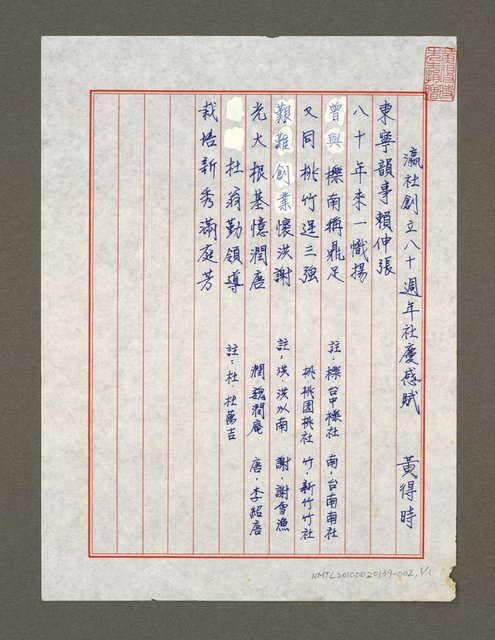 瀛社創立八十週年社慶感賦　黃得時
東寧韻事賴伸張
八十年來一幟揚
曾與櫟南稱鼎足　註：櫟台中櫟社　南，台南南社
又同桃竹逞三強　桃桃園桃社　竹，新竹竹社
艱難創業懷洪謝　註，洪，洪以南　謝，謝雪漁
光大根基憶潤唐　潤魏潤庵　唐，李紹唐
杜翁勤領導　註：杜 杜萬吉
栽培新秀滿庭芳
NMTL20100020139-002, 1/1